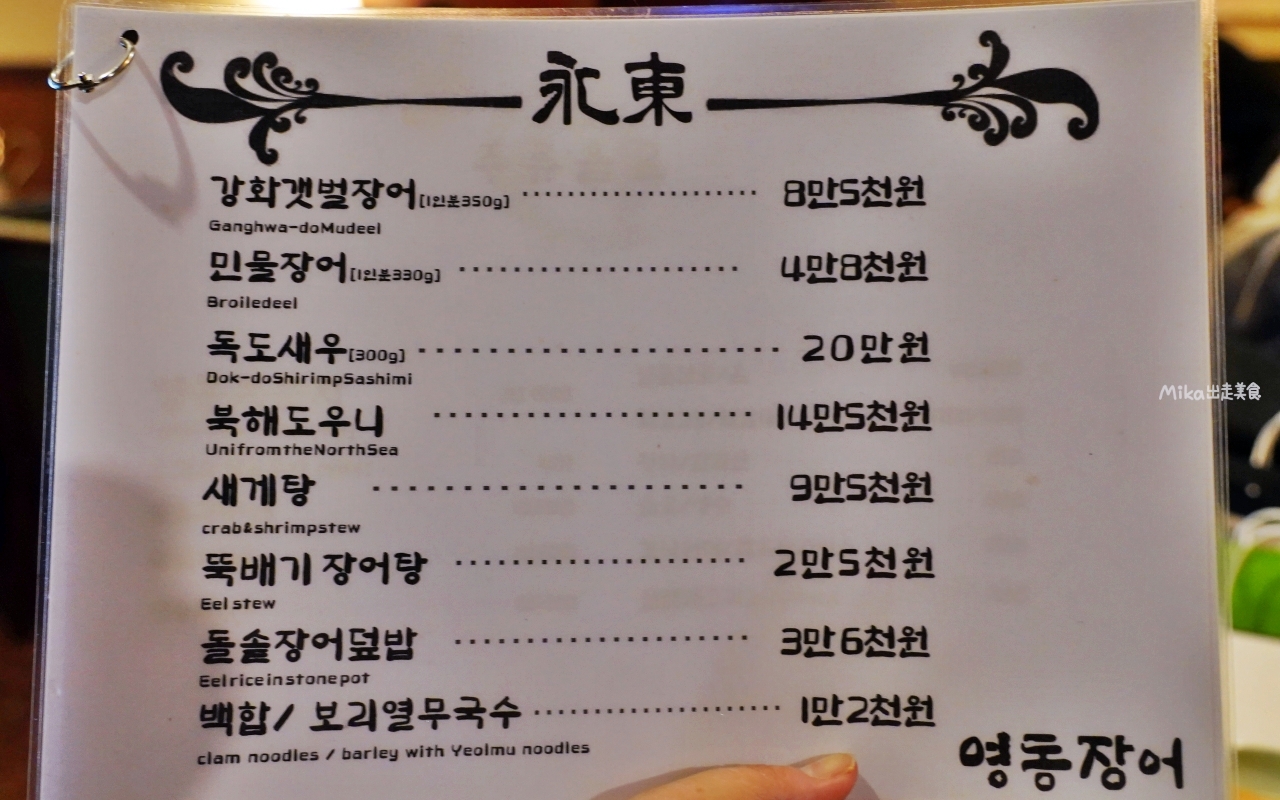 永東
강화갯벌장어[1인분350g] 8만5천원
Ganghwa-doMudeel
민물장어[1인분330g] 4만8천원
Broiledeel
독도새우[300g] 20만원
Dok-doShirimpSashimi
북해도우니 14만5천원
UnifromtheNorthSea
새게탕 9만5천원
crab&shrimpstew
뚝배기 장어탕 2만5천원
Eel stew
돌솥장어덮밥 3만6천원
Eelriceinstonepot
백합/ 보리열무국수 1만2천원
clam noodles / barley with Yeolmu noodles
영동장어
Mika出走美食